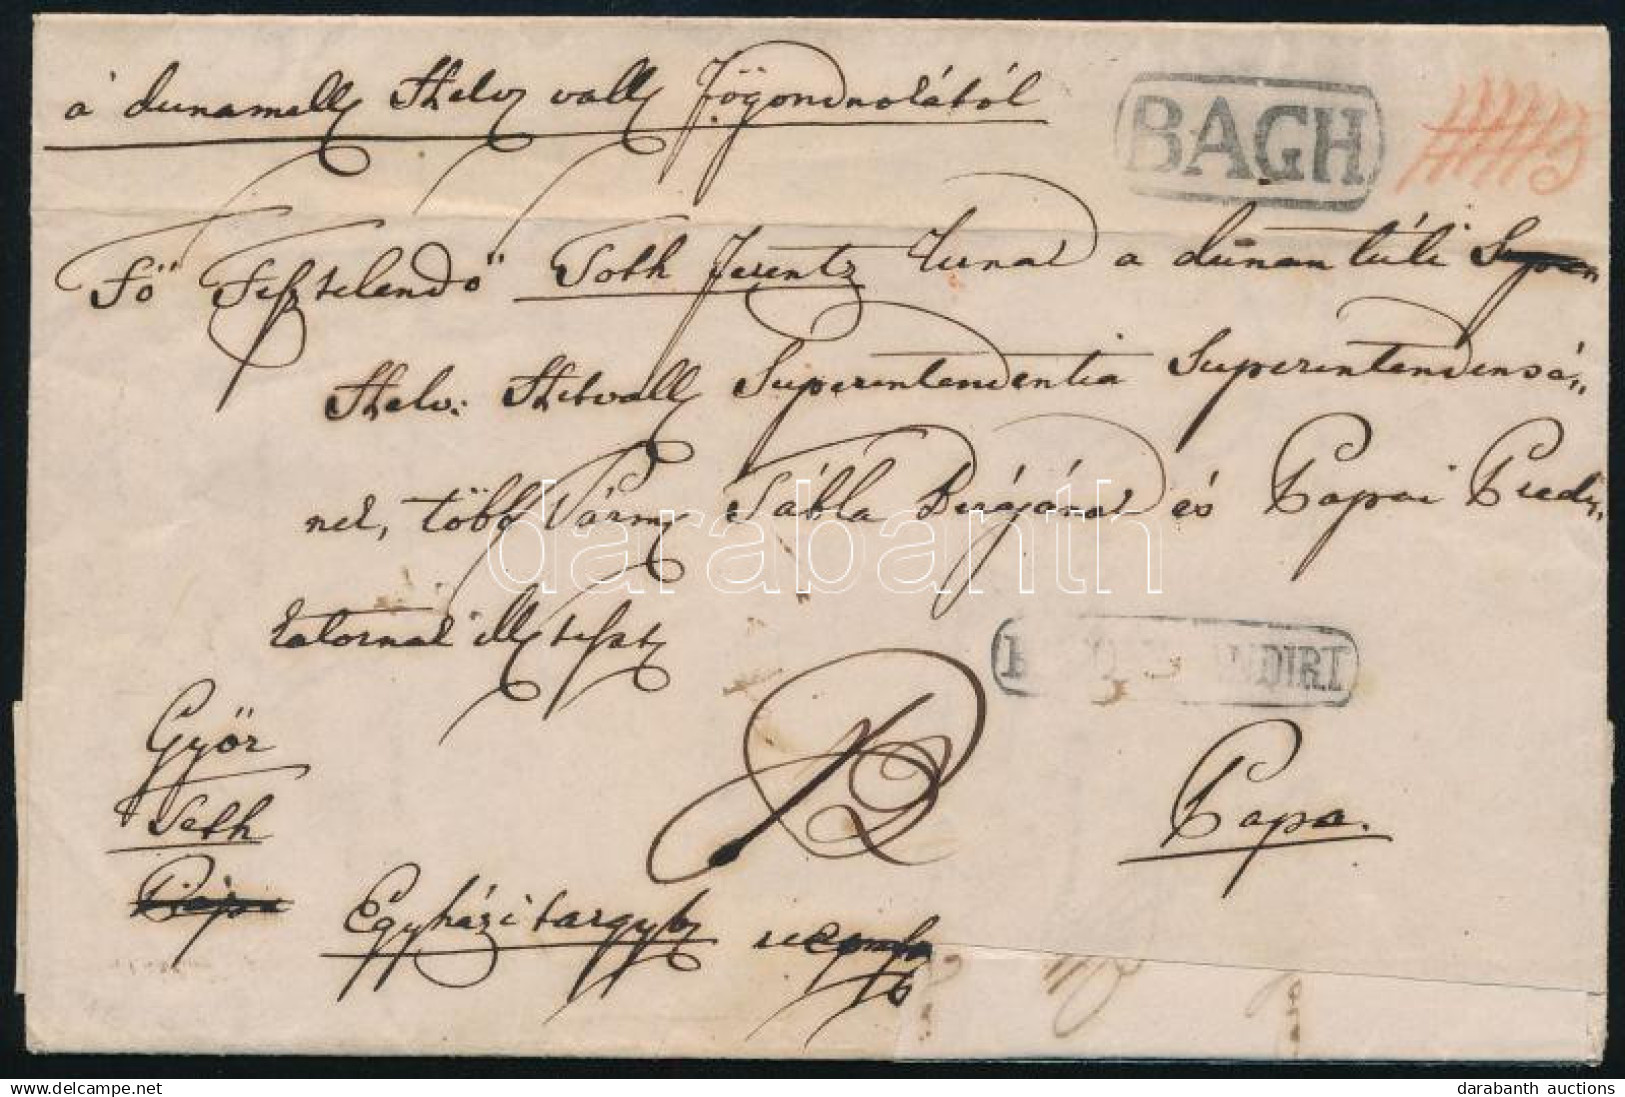 á dunamell Helv vall Főgondnokától
BAGH
Fő Tisztelendő Toth Ferentz Urnak a dunántúli
Helv: Hitvall Superintendentia Superintendensé,,
nek, több Várm Tábla Birájának és Papai Predi,,
katornak ill tiszt
Győr
Teth
Papa.
Egyházi tárgyb
darabanth
darabanth auctions